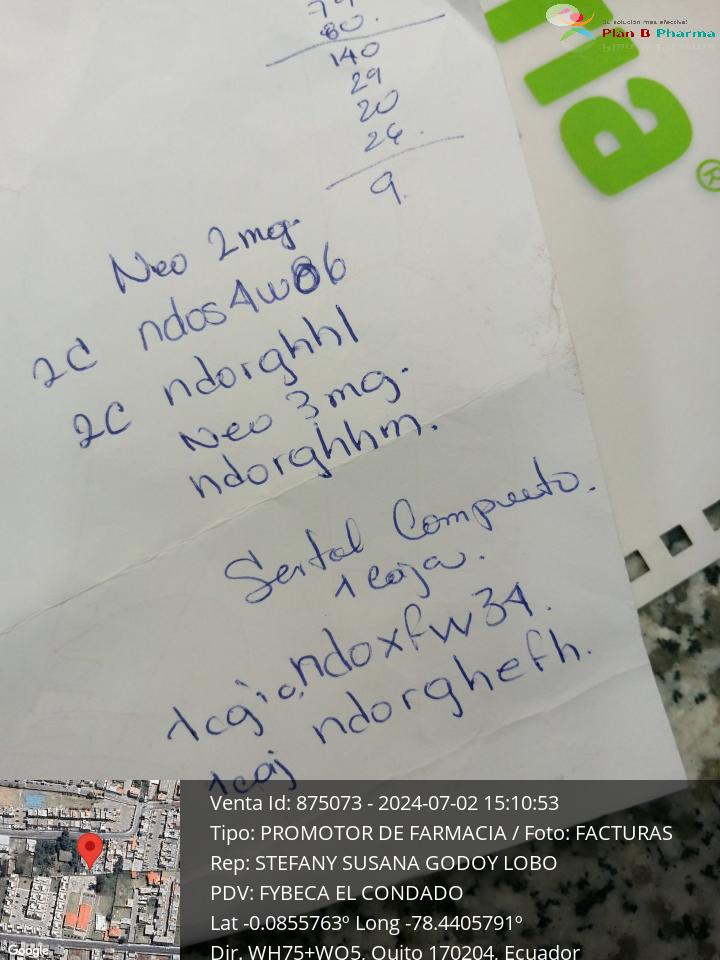 Su solución más efectiva!
Plan B Pharma
na®
80.
140
29
20
26.
9.
Neo 2mg.
2C ndos4w86
2C ndorghhl
Neo 3mg.
ndorghhm.
Sertal Compuesto.
1 caja.
1caja ndoxfw34.
1caj ndorghefh.
Venta Id: 875073 - 2024-07-02 15:10:53
Tipo: PROMOTOR DE FARMACIA / Foto: FACTURAS
Rep: STEFANY SUSANA GODOY LOBO
PDV: FYBECA EL CONDADO
Lat -0.0855763º Long -78.4405791º
Dir. WH75+WQ5, Quito 170204, Ecuador
Google